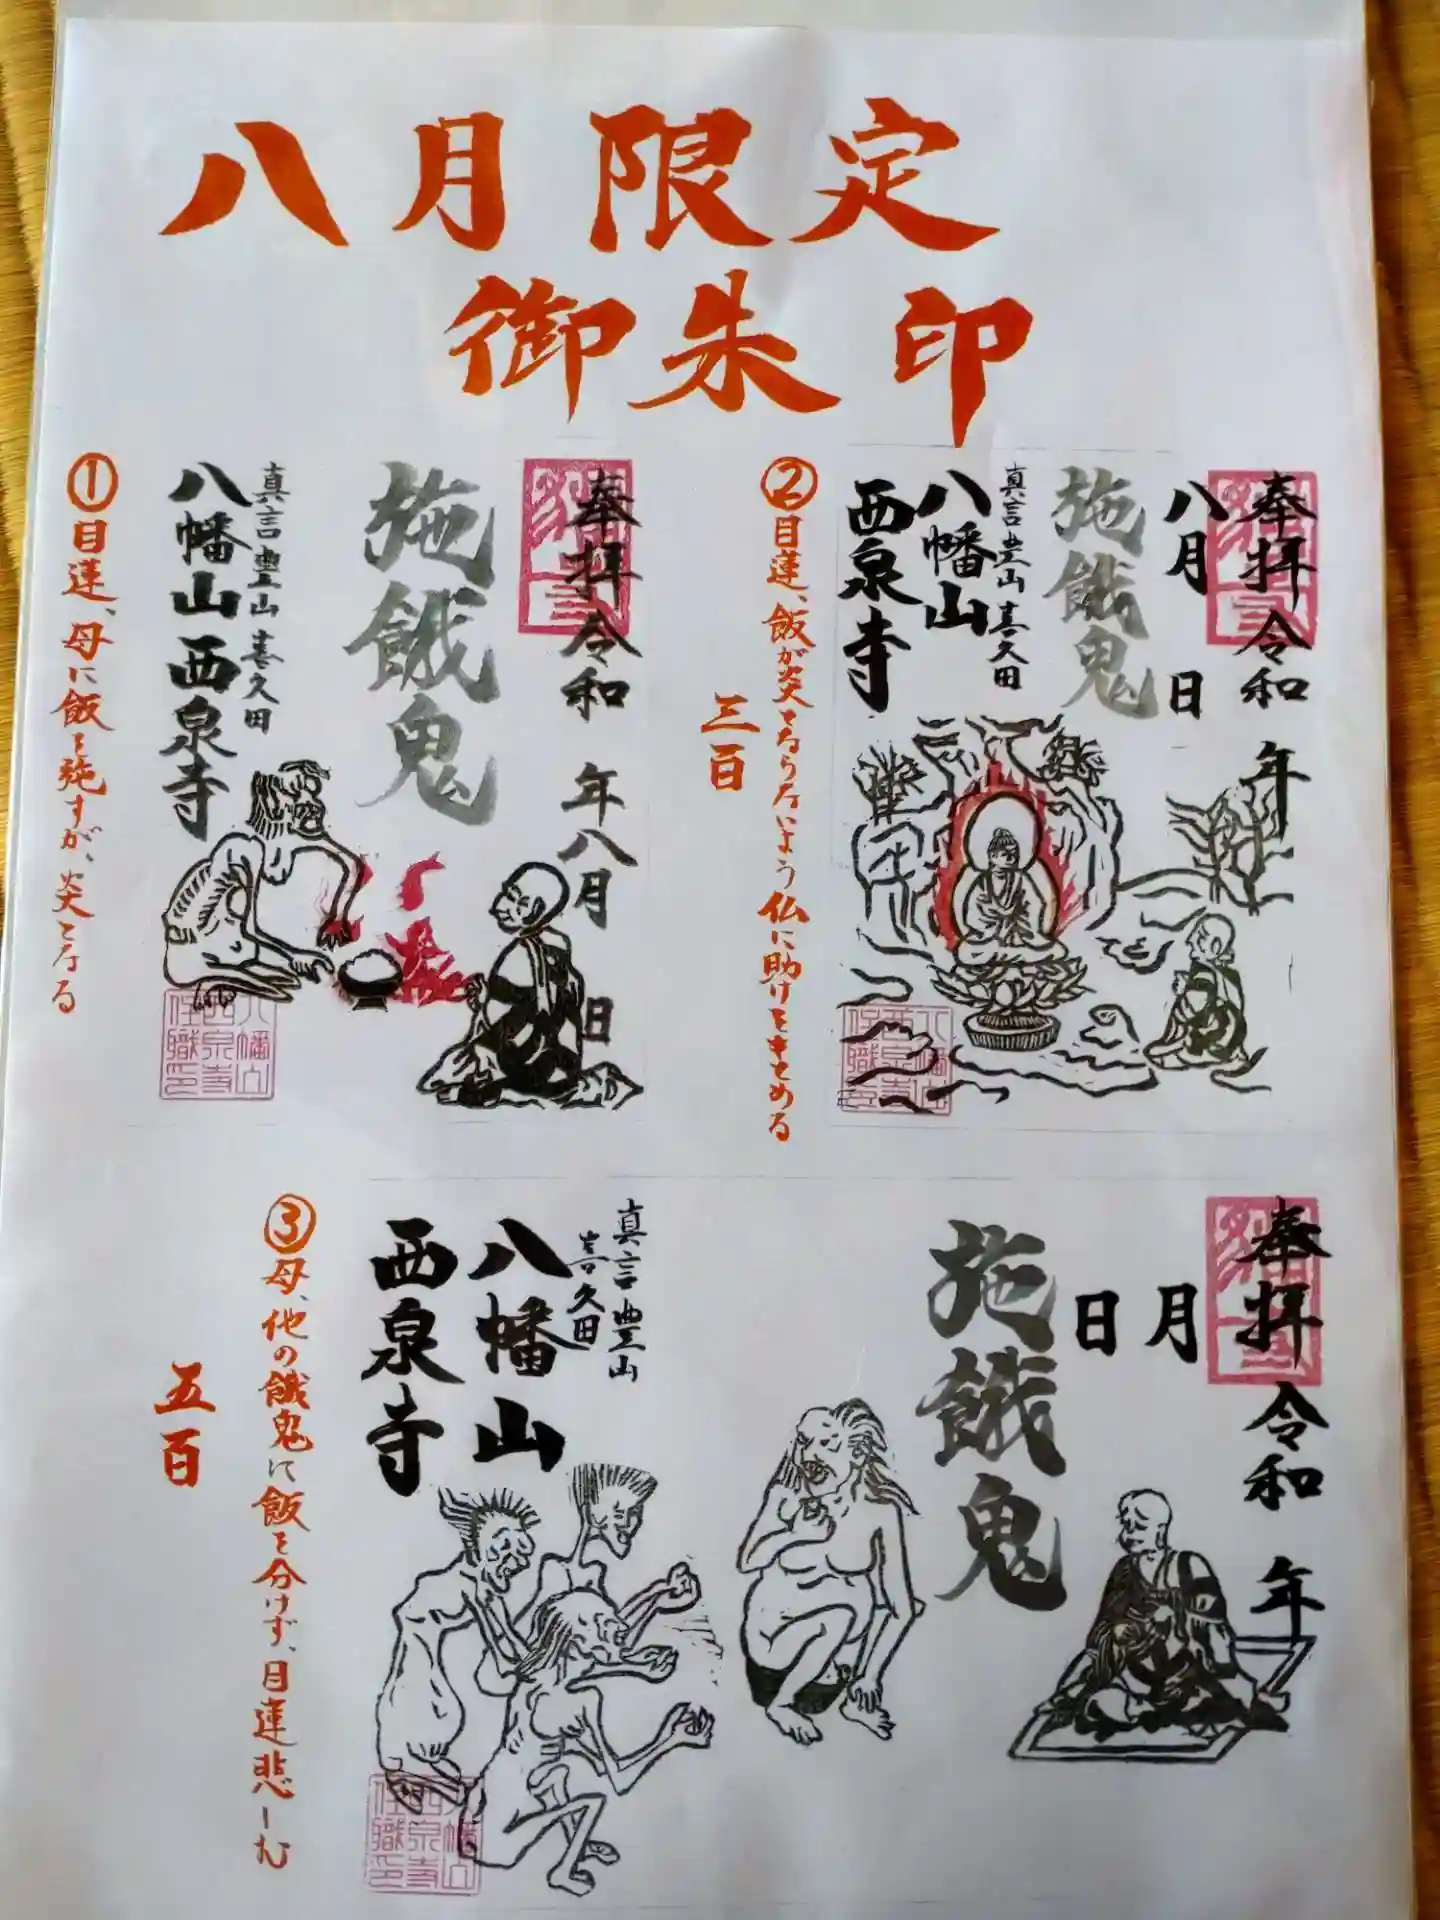 八月限定
御朱印
①目蓮、母に飯を施すが、炎となる
奉拝 令和 年 八月 日
施餓鬼
真言豊山 喜久田
八幡山 西泉寺
八幡山
西泉寺
住職印
三百
②目蓮、飯が炎とならないよう仏に助けをもとめる
奉拝 令和 年
八月 日
施餓鬼
真言豊山 喜久田
八幡山
西泉寺
八幡山
西泉寺
住職印
五百
③母、他の餓鬼に飯を分けず、目連悲しむ
奉拝 令和 年
月
日
施餓鬼
真言豊山
喜久田
八幡山
西泉寺
八幡山
西泉寺
住職印